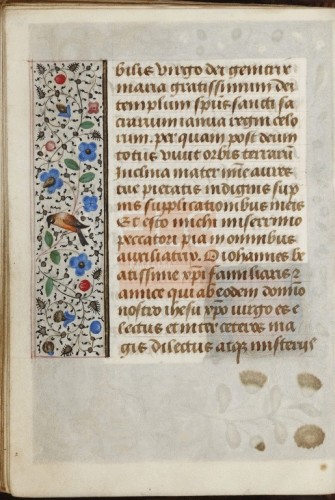 bilis virgo dei genitrix
maria gratissimum dei
templum spūs sancti sa
crarium ianua regni celo
rum. per quam post deum
totus vivit orbis terrarū
Inclina mater mīe aures
tue pietatis indignis sup
nis supplicationibus meis
Et esto michi miserrimo
peccatori pia in omnibus
auxiliatrix. O iohannes be
atissime xpi familiaris ⁊
amice qui ab eodem domīo
nostro ihesu xpo virgo es e
lectus et inter ceteros ma
gis dilectus atq; misteriis